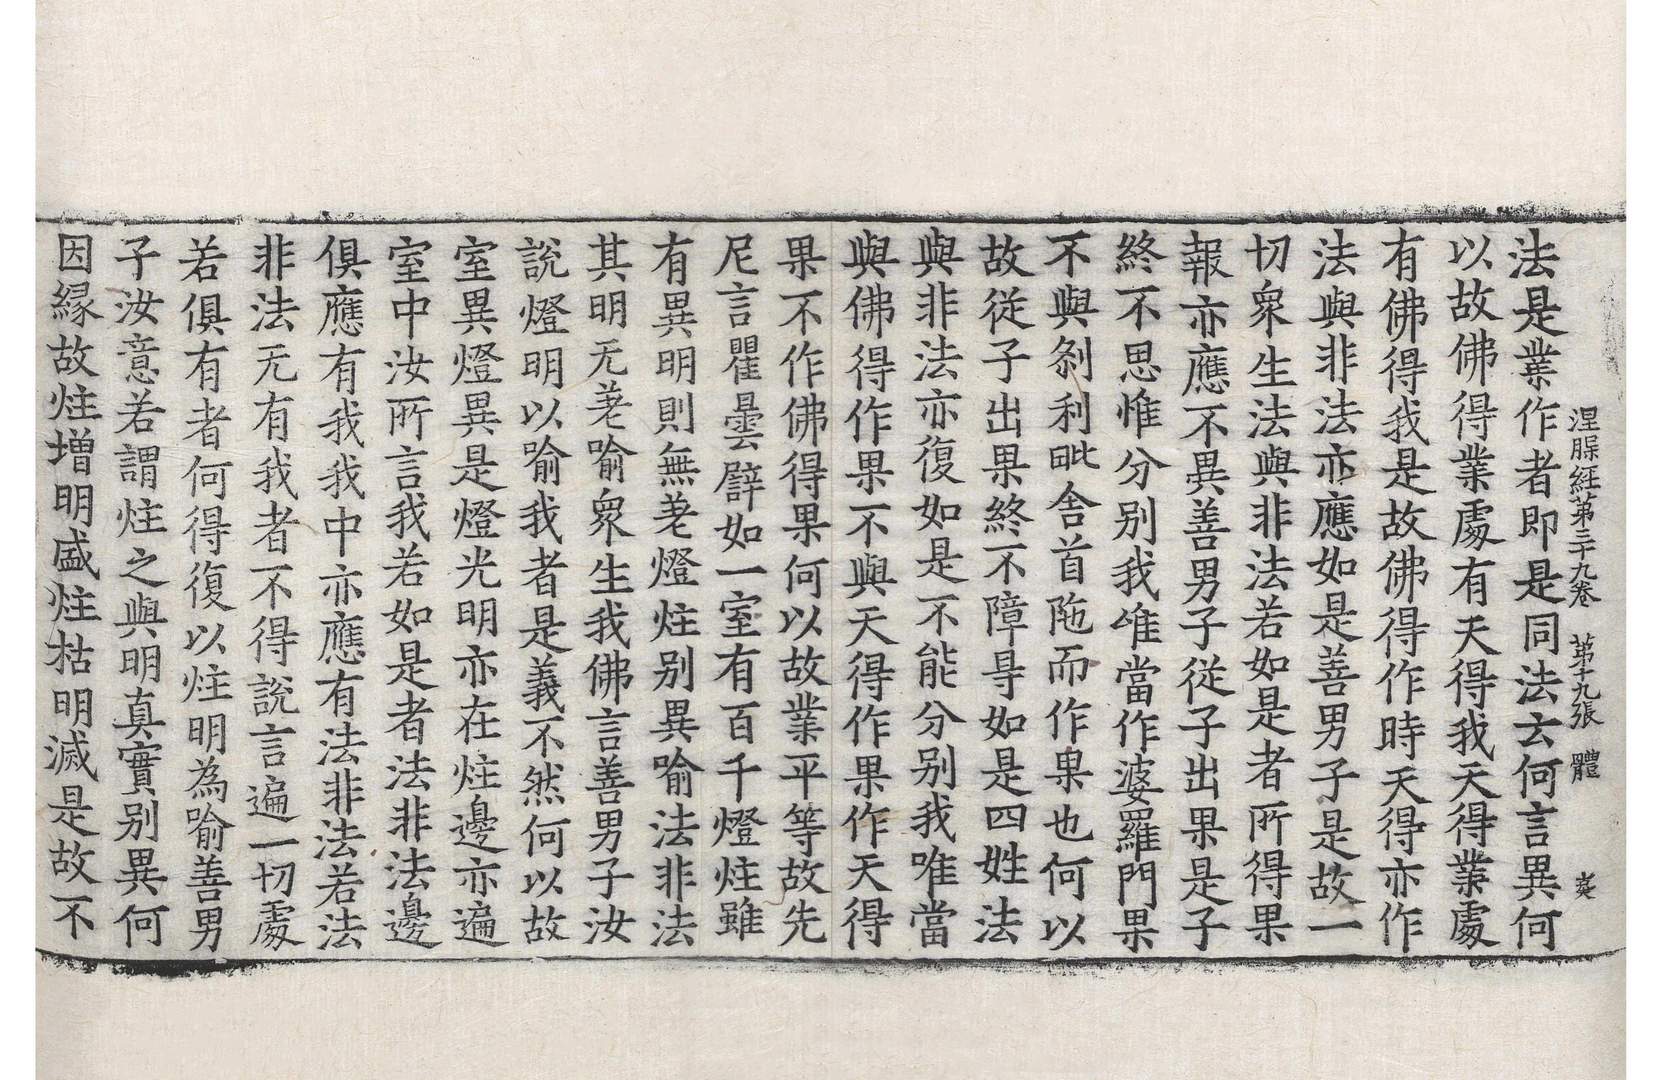 涅槃經第三十九卷　第十九張　體
法是業作者即是同法云何言異何
以故佛得業處有天得我天得業處
有佛得我是故佛得作時天得亦作
法與非法亦應如是善男子是故一
切衆生法與非法若如是者所得果
報亦應不異善男子從子出果是子
終不思惟分別我唯當作婆羅門果
不與刹利毗舍首陁而作果也何以
故從子出果終不障㝵如是四姓法
與非法亦復如是不能分別我唯當
與佛得作果不與天得作果作天得
果不作佛得果何以故業平等故先
尼言瞿曇譬如一室有百千燈炷雖
有異明則無差燈炷別異喻法非法
其明无差喻衆生我佛言善男子汝
說燈明以喻我者是義不然何以故
室異燈異是燈光明亦在炷邊亦遍
室中汝所言我若如是者法非法邊
俱應有我我中亦應有法非法若法
非法无有我者不得說言遍一切處
若俱有者何得復以炷明為喻善男
子汝意若謂炷之與明真實別異何
因緣故炷增明盛炷枯明滅是故不